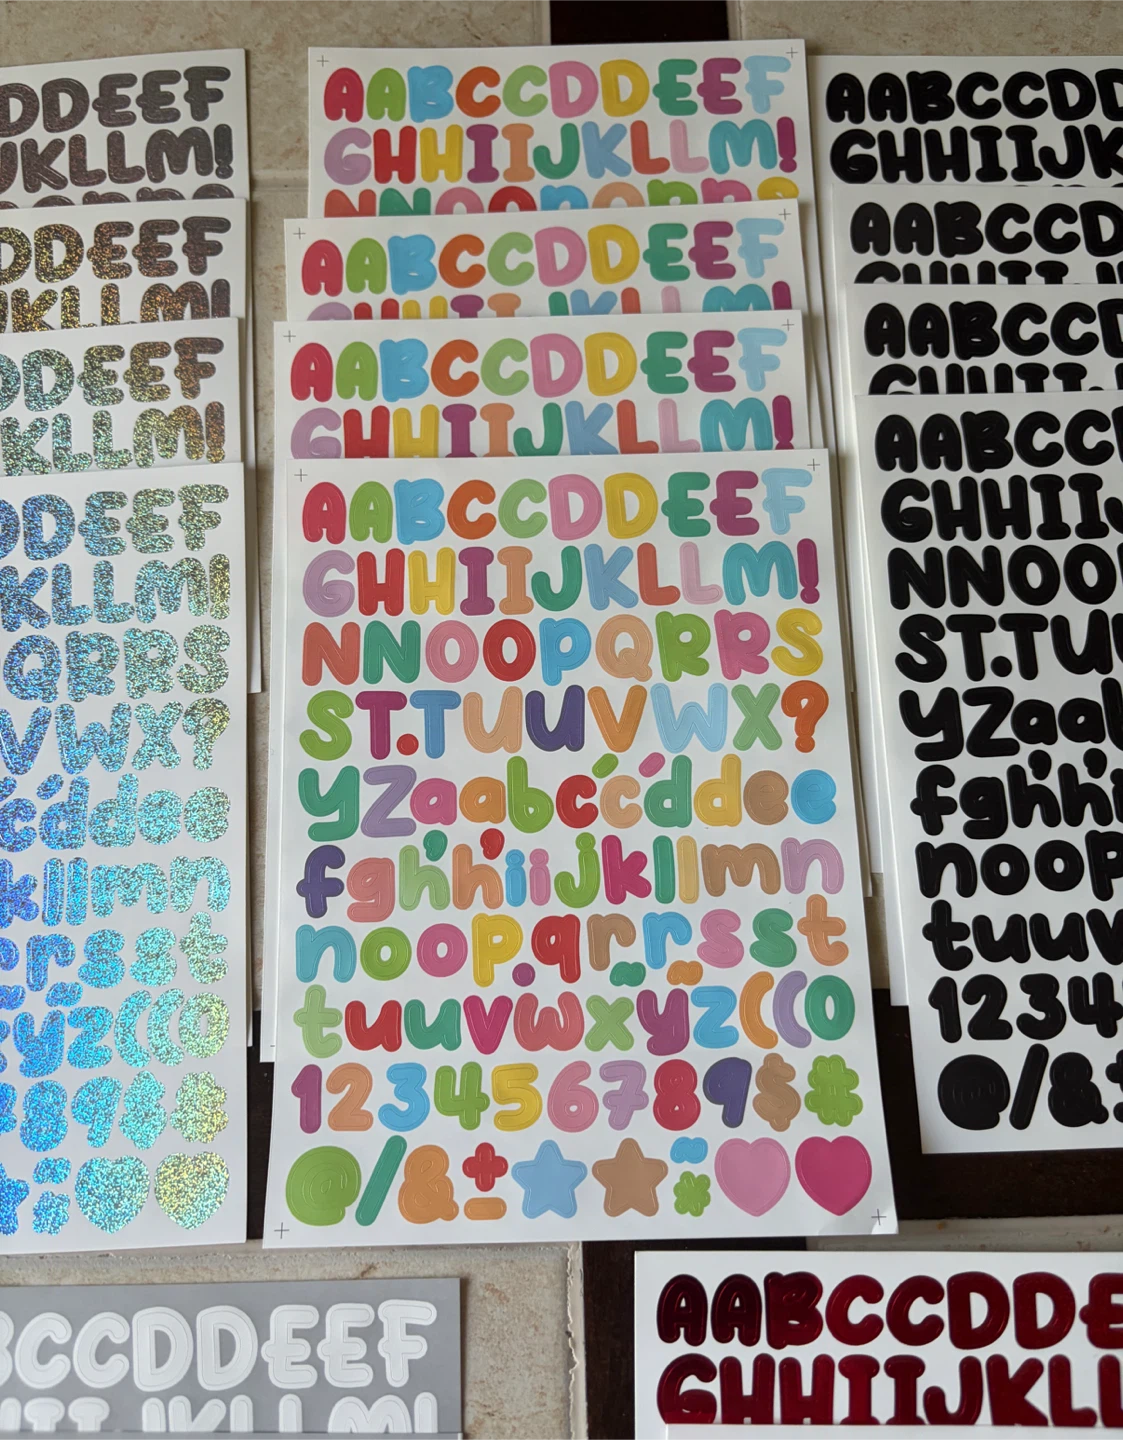 DDEEF
JKLLM!
DDEEF
JKLLM!
DDEEF
KLLM!
DDEEF
KLLM!
QRRS
VWX?
ćďdee
kllmn
rsst
yz((0
89$#
AABCCDDEEF
GHHIIJKLLM!
NNOOPQRRS
AABCCDDEEF
GHHIIJKLLM!
AABCCDDEEF
GHHIIJKLLM!
AABCCDDEEF
GHHIIJKLLM!
NNOOPQRRS
ST.TUUVWX?
YZaabcćďdee
fghhiijkllmn
noop.qrrsst
tuuvwxyz((0
123456789$#
@/&±
AABCCDD
GHHIIJK
AABCCD
GHHIIJ
AABCCD
GHHII
AABCC
GHHIIJ
NNOO
ST.TU
YZaab
fghhi
noop
tuuv
1234
@/&±
BCCDDEEF
IIJKLLM!
AABCCDDE
GHHIIJKLL